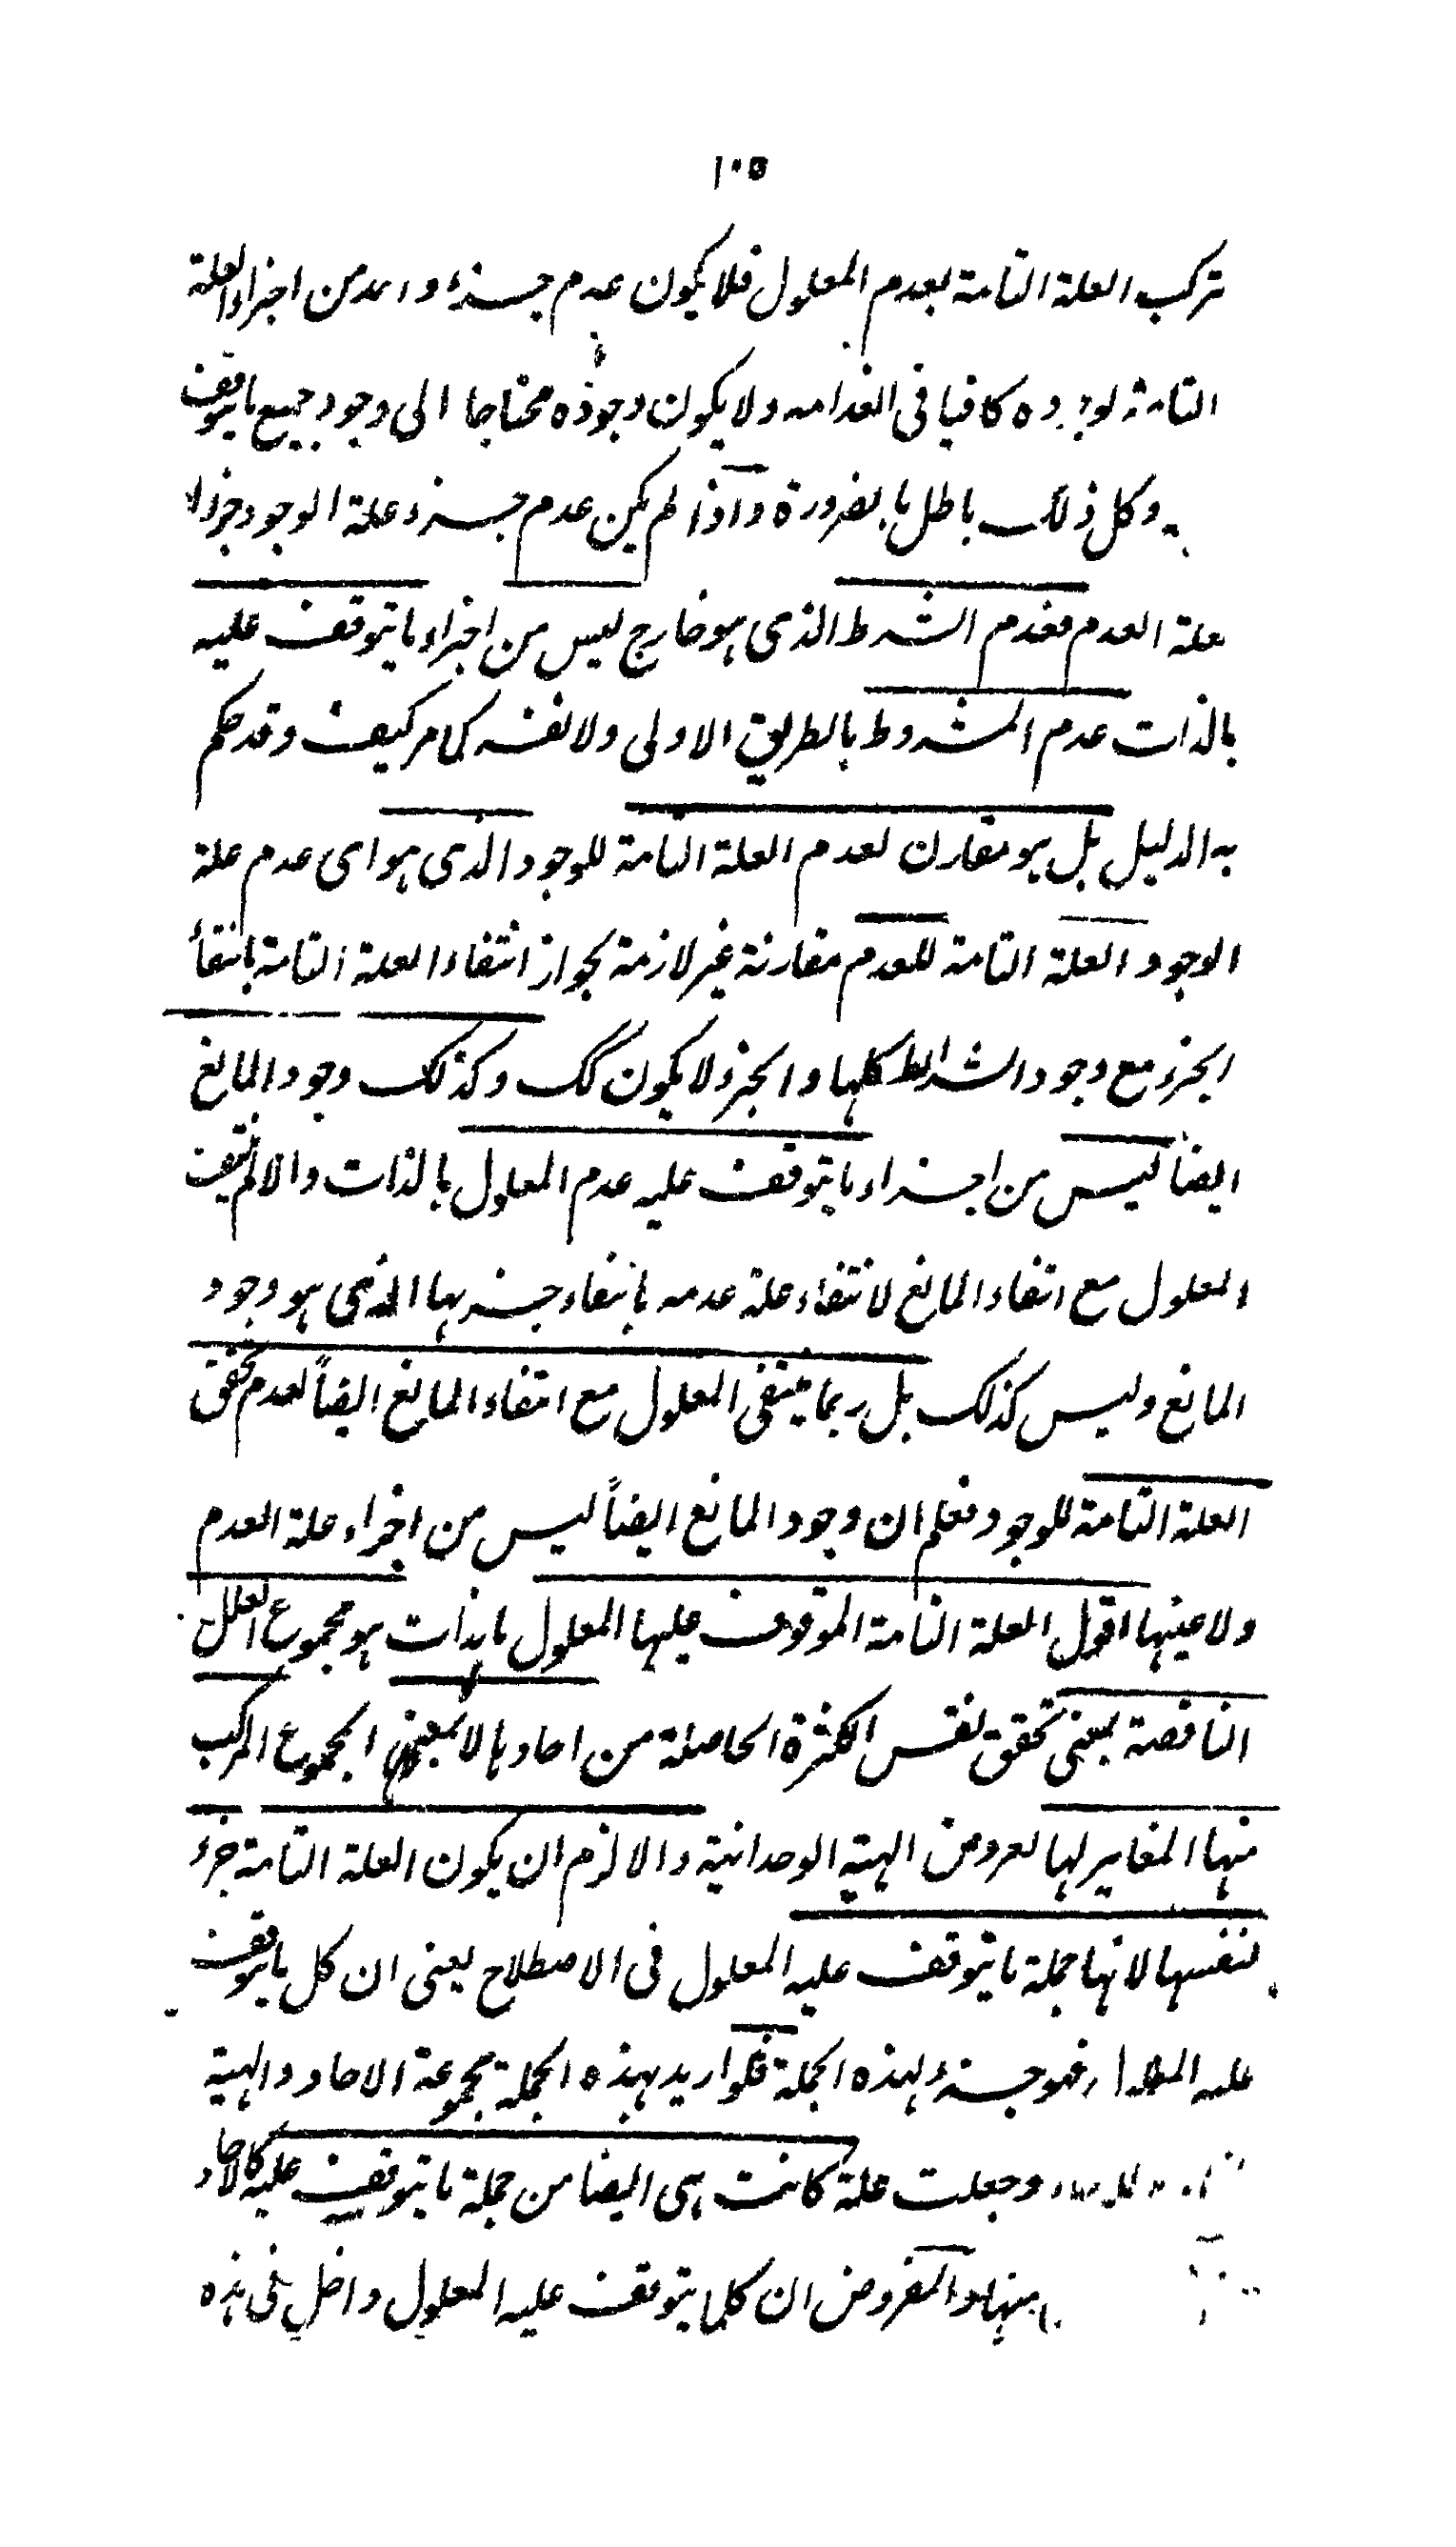 ١٠٥
تركب العلة التامة لعدم المعلول فلا يكون عدم جزء واحد من اجزاء العلة
التامة لوجوده كافيا فى انعدامه ولا يكون وجوده محتاجا الى وجود جميع ما يتوقف
به وكل ذلك باطل بالضرورة واذا لم يكن عدم جزء علة الوجود جزءا
لعلة العدم فعدم الشرط الذى هو خارج ليس من اجزاء ما يتوقف عليه
بالذات عدم المشروط بالطريق الاولى ولا نفسه كما مر كيف وقد حكم
به الدليل بل هو مقارن لعدم العلة التامة للوجود الذى هو اى عدم علة
الوجود العلة التامة للعدم مقارنة غير لازمة لجواز انتفاء العلة التامة بانتفاء
الجزء مع وجود الشرائط كلها والجزء لا يكون كك وكذلك وجود المانع
ايضاً ليس من اجزاء ما يتوقف عليه عدم المعلول بالذات والا لم ينتف
المعلول مع انتفاء المانع لانتفاء علة عدمه بانتفاء جزئها الذى هو وجود
المانع وليس كذلك بل ربما ينتفى المعلول مع انتفاء المانع ايضاً لعدم تحقق
العلة التامة للوجود فعلم ان وجود المانع ايضاً ليس من اجزاء علة العدم
ولا عينها اقول العلة التامة الموقوف عليها المعلول بالذات هو مجموع العلل
الناقصة بمعنى تحقق نفس الكثرة الحاصلة من احادها لا بمعنى المجموع المركب
منها المغاير لها لعروض الهيئة الوحدانية والا لزم ان يكون العلة التامة جزء
لنفسها لانها جملة ما يتوقف عليه المعلول فى الاصطلاح يعنى ان كل ما يتوقف
عليه فهو جزء لهذه الجملة فلو اريد بهذه الجملة مجموعة الاحاد والهيئة
وجعلت علة كانت هى ايضا من جملة ما يتوقف عليه كالاحاد
منها والمفروض ان كلما يتوقف عليه المعلول داخل فى هذه